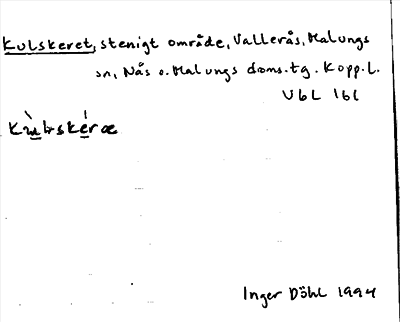 Kulskeret, stenigt område, Vallerås, Malungs
sn, Nås o. Malungs doms.tg. Kopp.l.
VbL 1b1
Inger Döhl 1994